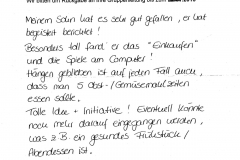 Wir bitten um Rückgabe an Ihre Gruppenleitung bis zum
Meinem Sohn hat es sehr gut gefallen, er hat
begeistert berichtet!
Besonders toll fand er das "Einkaufen"
und die Spiele am Computer!
Hängen geblieben ist auf jeden Fall auch,
dass man 5 Obst-/Gemüsemahlzeiten
essen sollte.
Tolle Idee + Initiative! Eventuell könnte
noch mehr darauf eingegangen werden,
was z.B. ein gesundes Frühstück/
Abendessen ist.